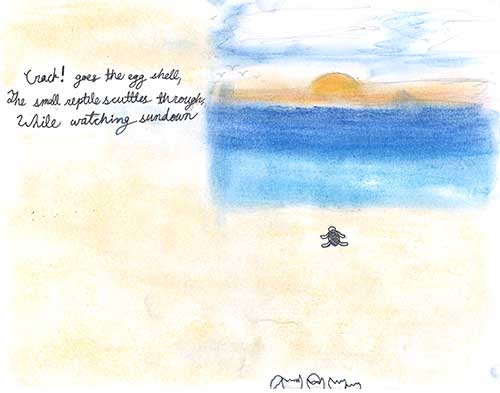 Crack! goes the egg shell,
The small reptile scuttles through,
While watching sundown